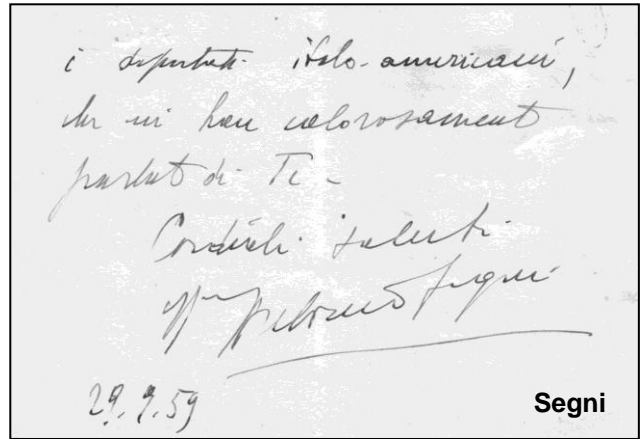 i deputati italo-americani,
che mi han calorosament
parlat di Te -
Cordiali saluti
Segni
29.9.59
Segni